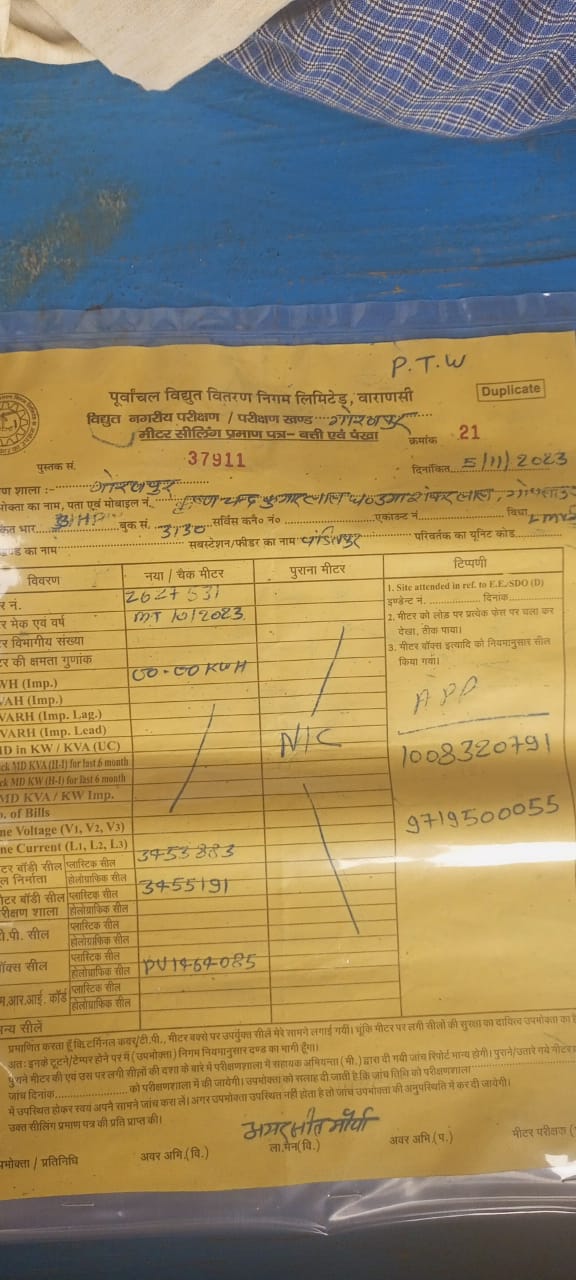 P.T.W
पूर्वांचल विद्युत वितरण निगम लिमिटेड, वाराणसी
Duplicate
विद्युत नगरीय परीक्षण / परीक्षण खण्ड गोरखपुर
मीटर सीलिंग प्रमाण पत्र- बत्ती एवं पंखा
क्रमांक 21
पुस्तक सं. 37911
दिनांकित 5/11/2023
ण शाला :- गोरखपुर
भोक्ता का नाम, पता एवं मोबाइल नं. कृष्ण चन्द्र कुमार लाल
कृत भार BHP बुक सं. 3130 सर्विस कनै० नं० एकाउन्ट नं. विधा LMV
ण्ड का नाम सबस्टेशन/फीडर का नाम परिवर्तक का यूनिट कोड
विवरण नया / चैक मीटर पुराना मीटर टिप्पणी
र नं. 2627531
1. Site attended in ref. to E.E./SDO (D)
इण्डेन्ट नं. दिनांक
र मेक एवं वर्ष MT 10/2023
2. मीटर को लोड पर प्रत्येक फेस पर चला कर
देखा, ठीक पाया।
र विभागीय संख्या
3. मीटर बॉक्स इत्यादि को नियमानुसार सील
किया गया।
र की क्षमता गुणांक
WH (Imp.) 00-00 KWH
VAH (Imp.)
VARH (Imp. Lag.)
APP
VARH (Imp. Lead)
MD in KW / KVA (UC) N/C
1008320791
ck MD KVA (H-1) for last 6 month
ck MD KW (H-1) for last 6 month
MD KVA / KW Imp.
. of Bills
ne Voltage (V1, V2, V3)
9719500055
ne Current (L1, L2, L3)
टर बॉडी सील प्लास्टिक सील 3453883
ूल निर्माता होलोग्राफिक सील
ीटर बॉडी सील प्लास्टिक सील 3455191
रीक्षण शाला होलोग्राफिक सील
ी.पी. सील प्लास्टिक सील
होलोग्राफिक सील
ॉक्स सील प्लास्टिक सील
होलोग्राफिक सील PV1464085
म.आर.आई. कॉर्ड प्लास्टिक सील
होलोग्राफिक सील
न्य सीलें
प्रमाणित करता हूँ कि टर्मिनल कवर/टी.पी., मीटर बक्से पर उपर्युक्त सीले मेरे सामने लगाई गयी। चूंकि मीटर पर लगी सीलों की सुरक्षा का दायित्व उपभोक्ता का है
अतः इनके टूटने/टेम्पर होने पर मैं (उपभोक्ता) निगम नियमानुसार दण्ड का भागी हूँगा।
पुराने मीटर की एवं उस पर लगी सीलों की दशा के बारे में परीक्षणशाला में सहायक अभियन्ता (मी.) द्वारा दी गयी जांच रिपोर्ट मान्य होगी। पुराने/उतारे गये मीटर
जांच दिनांक को परीक्षणशाला में की जायेगी। उपभोक्ता को सलाह दी जाती है कि जांच तिथि को परीक्षणशाला
में उपस्थित होकर स्वयं अपने सामने जांच करा लें। अगर उपभोक्ता उपस्थित नहीं होता है तो जांच उपभोक्ता की अनुपस्थिति में कर दी जायेगी।
उक्त सीलिंग प्रमाण पत्र की प्रति प्राप्त की।
अमरजीत मौर्या
पभोक्ता / प्रतिनिधि अवर अभि.(वि.) ला.मैन(वि.) अवर अभि.(प.) मीटर परीक्षक